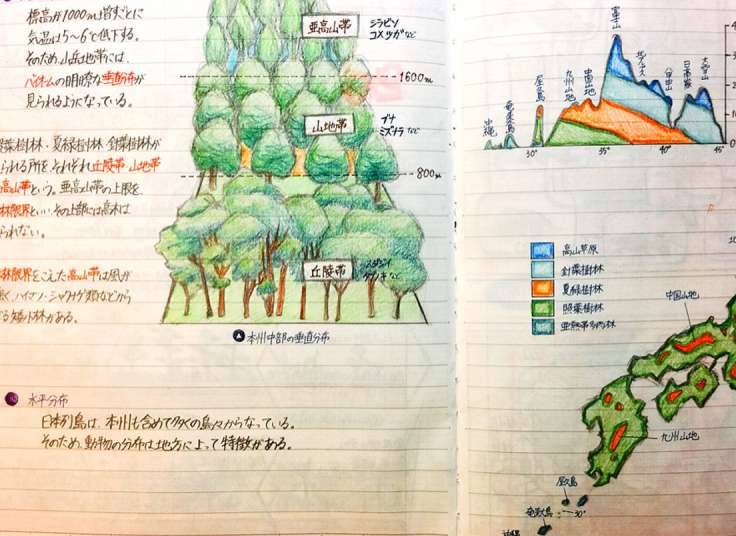 標高が1000m増すごとに
気温は5〜6℃低下する。
そのため、山岳地帯には、
バイオームの明瞭な垂直分布が
見られるようになっている。
葉樹林・夏緑樹林・針葉樹林が
られる所を、それぞれ丘陵帯・山地帯
高山帯という。亜高山帯の上限を
林限界といい、その上部には高木は
られない。
林限界をこえた高山帯は風が
く、ハイマツ・シャクナゲ類などから
る矮小林がある。
亜高山帯
シラビソ
コメツガなど
1600m
山地帯
ブナ
ミズナラ など
800m
丘陵帯
スダジイ
タブノキ など
本州中部の垂直分布
水平分布
日本列島は、本州も含めて多くの島々からなっている。
そのため、動物の分布は地方によって特徴がある。
沖縄
奄美大島
屋久島
九州山地
中国山地
富士山
北アルプス
八甲田山
日高山脈
大雪山
4
3
2
1
0
30°
35°
40°
45°
高山草原
針葉樹林
夏緑樹林
照葉樹林
亜熱帯多雨林
中国山地
九州山地
屋久島
奄美大島
30°
沖縄